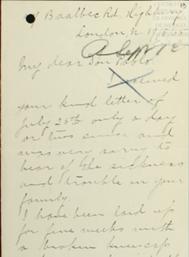 Baalbec Rd. Highbury
London N.
My dear Don Pablo
I received
your kind letter of
July 25th only a day
or two since and
was very sorry to
hear of the sickness
and trouble in your
family
I have been laid up
for five weeks with
a broken knee-cap